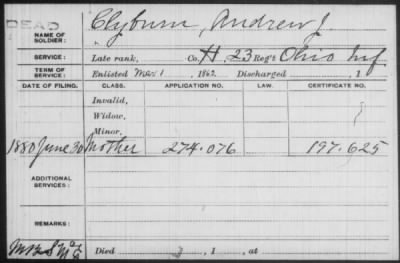 DEAD
NAME OF SOLDIER: Clyburn, Andrew J.
SERVICE: Late rank, Co. H, 23 Reg't Ohio Inf
TERM OF SERVICE: Enlisted Mar 1, 1862. Discharged , 1
DATE OF FILING. CLASS. APPLICATION NO. LAW. CERTIFICATE NO.
Invalid,
Widow,
Minor,
1880 June 30 Mother 274.076 197.625
ADDITIONAL SERVICES:
REMARKS:
Died , 1 , at